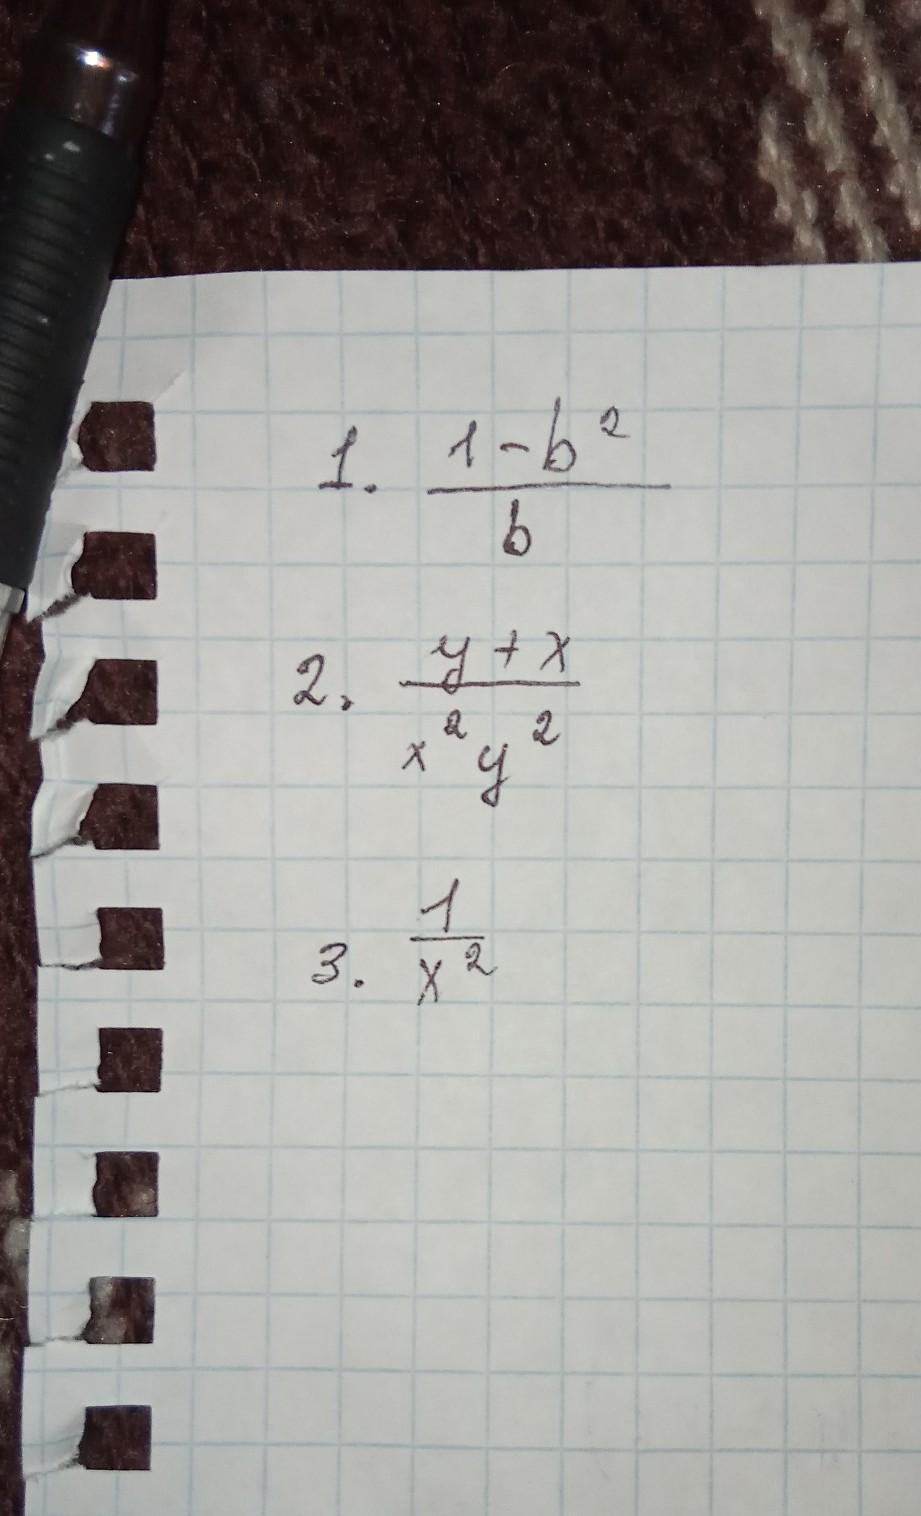 1. (1-b²)/b
2. (y+x)/(x²y²)
3. 1/x²